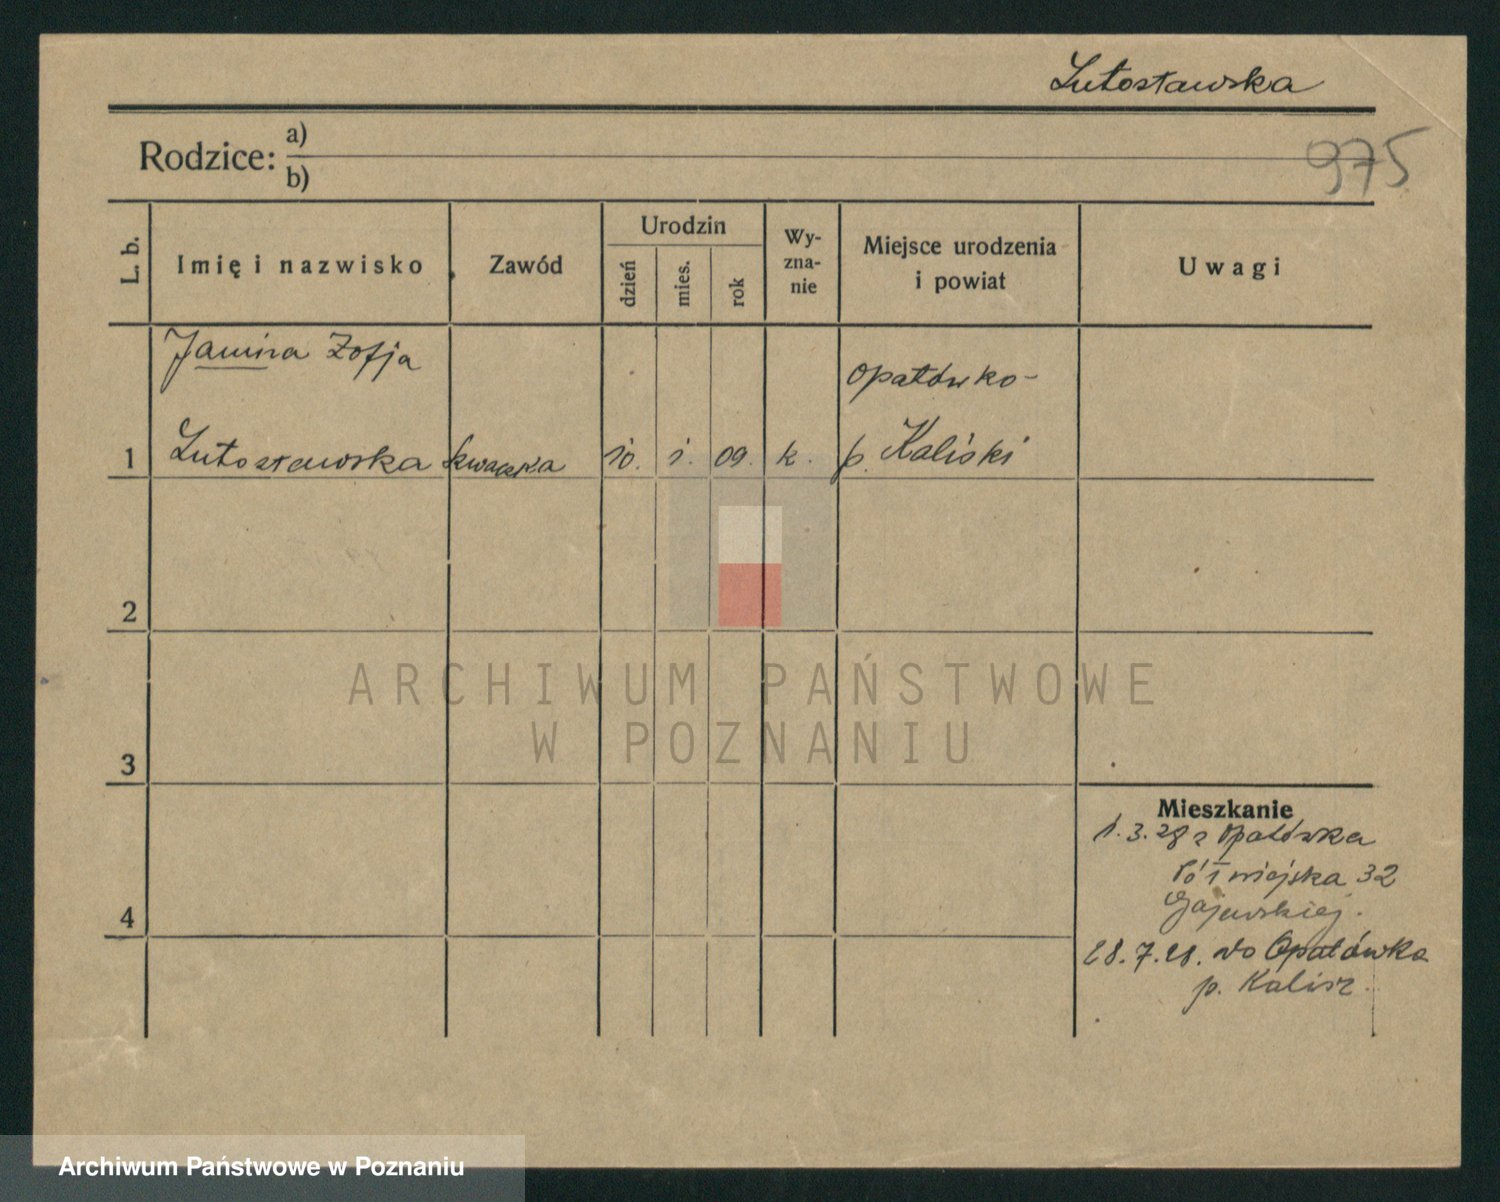 Lutosławska
975
Rodzice: a)
b)
L. b.
Imię i nazwisko
Zawód
Urodzin
dzień
mies.
rok
Wy-
zna-
nie
Miejsce urodzenia
i powiat
Uwagi
Janina Zofja
Opatówko-
1 Lutosławska 10. 1. 09. k. p. Kaliski
2
ARCHIWUM PAŃSTWOWE
W POZNANIU
3
Mieszkanie
1.3.28 z Opatówka
Półwiejska 32
Gajewskiej.
4
28.7.28. do Opatówka
p. Kalisz.
Archiwum Państwowe w Poznaniu